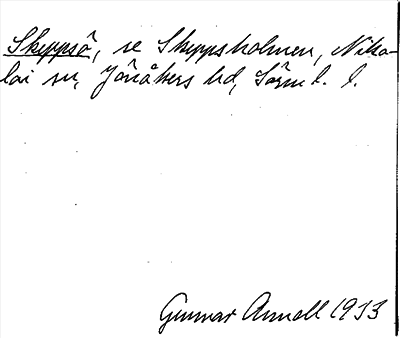 Skeppsö, se Skeppsholmen, Niko-
lai sn, Jönåkers hd, Sörml. l.
Gunnar Annell 1933